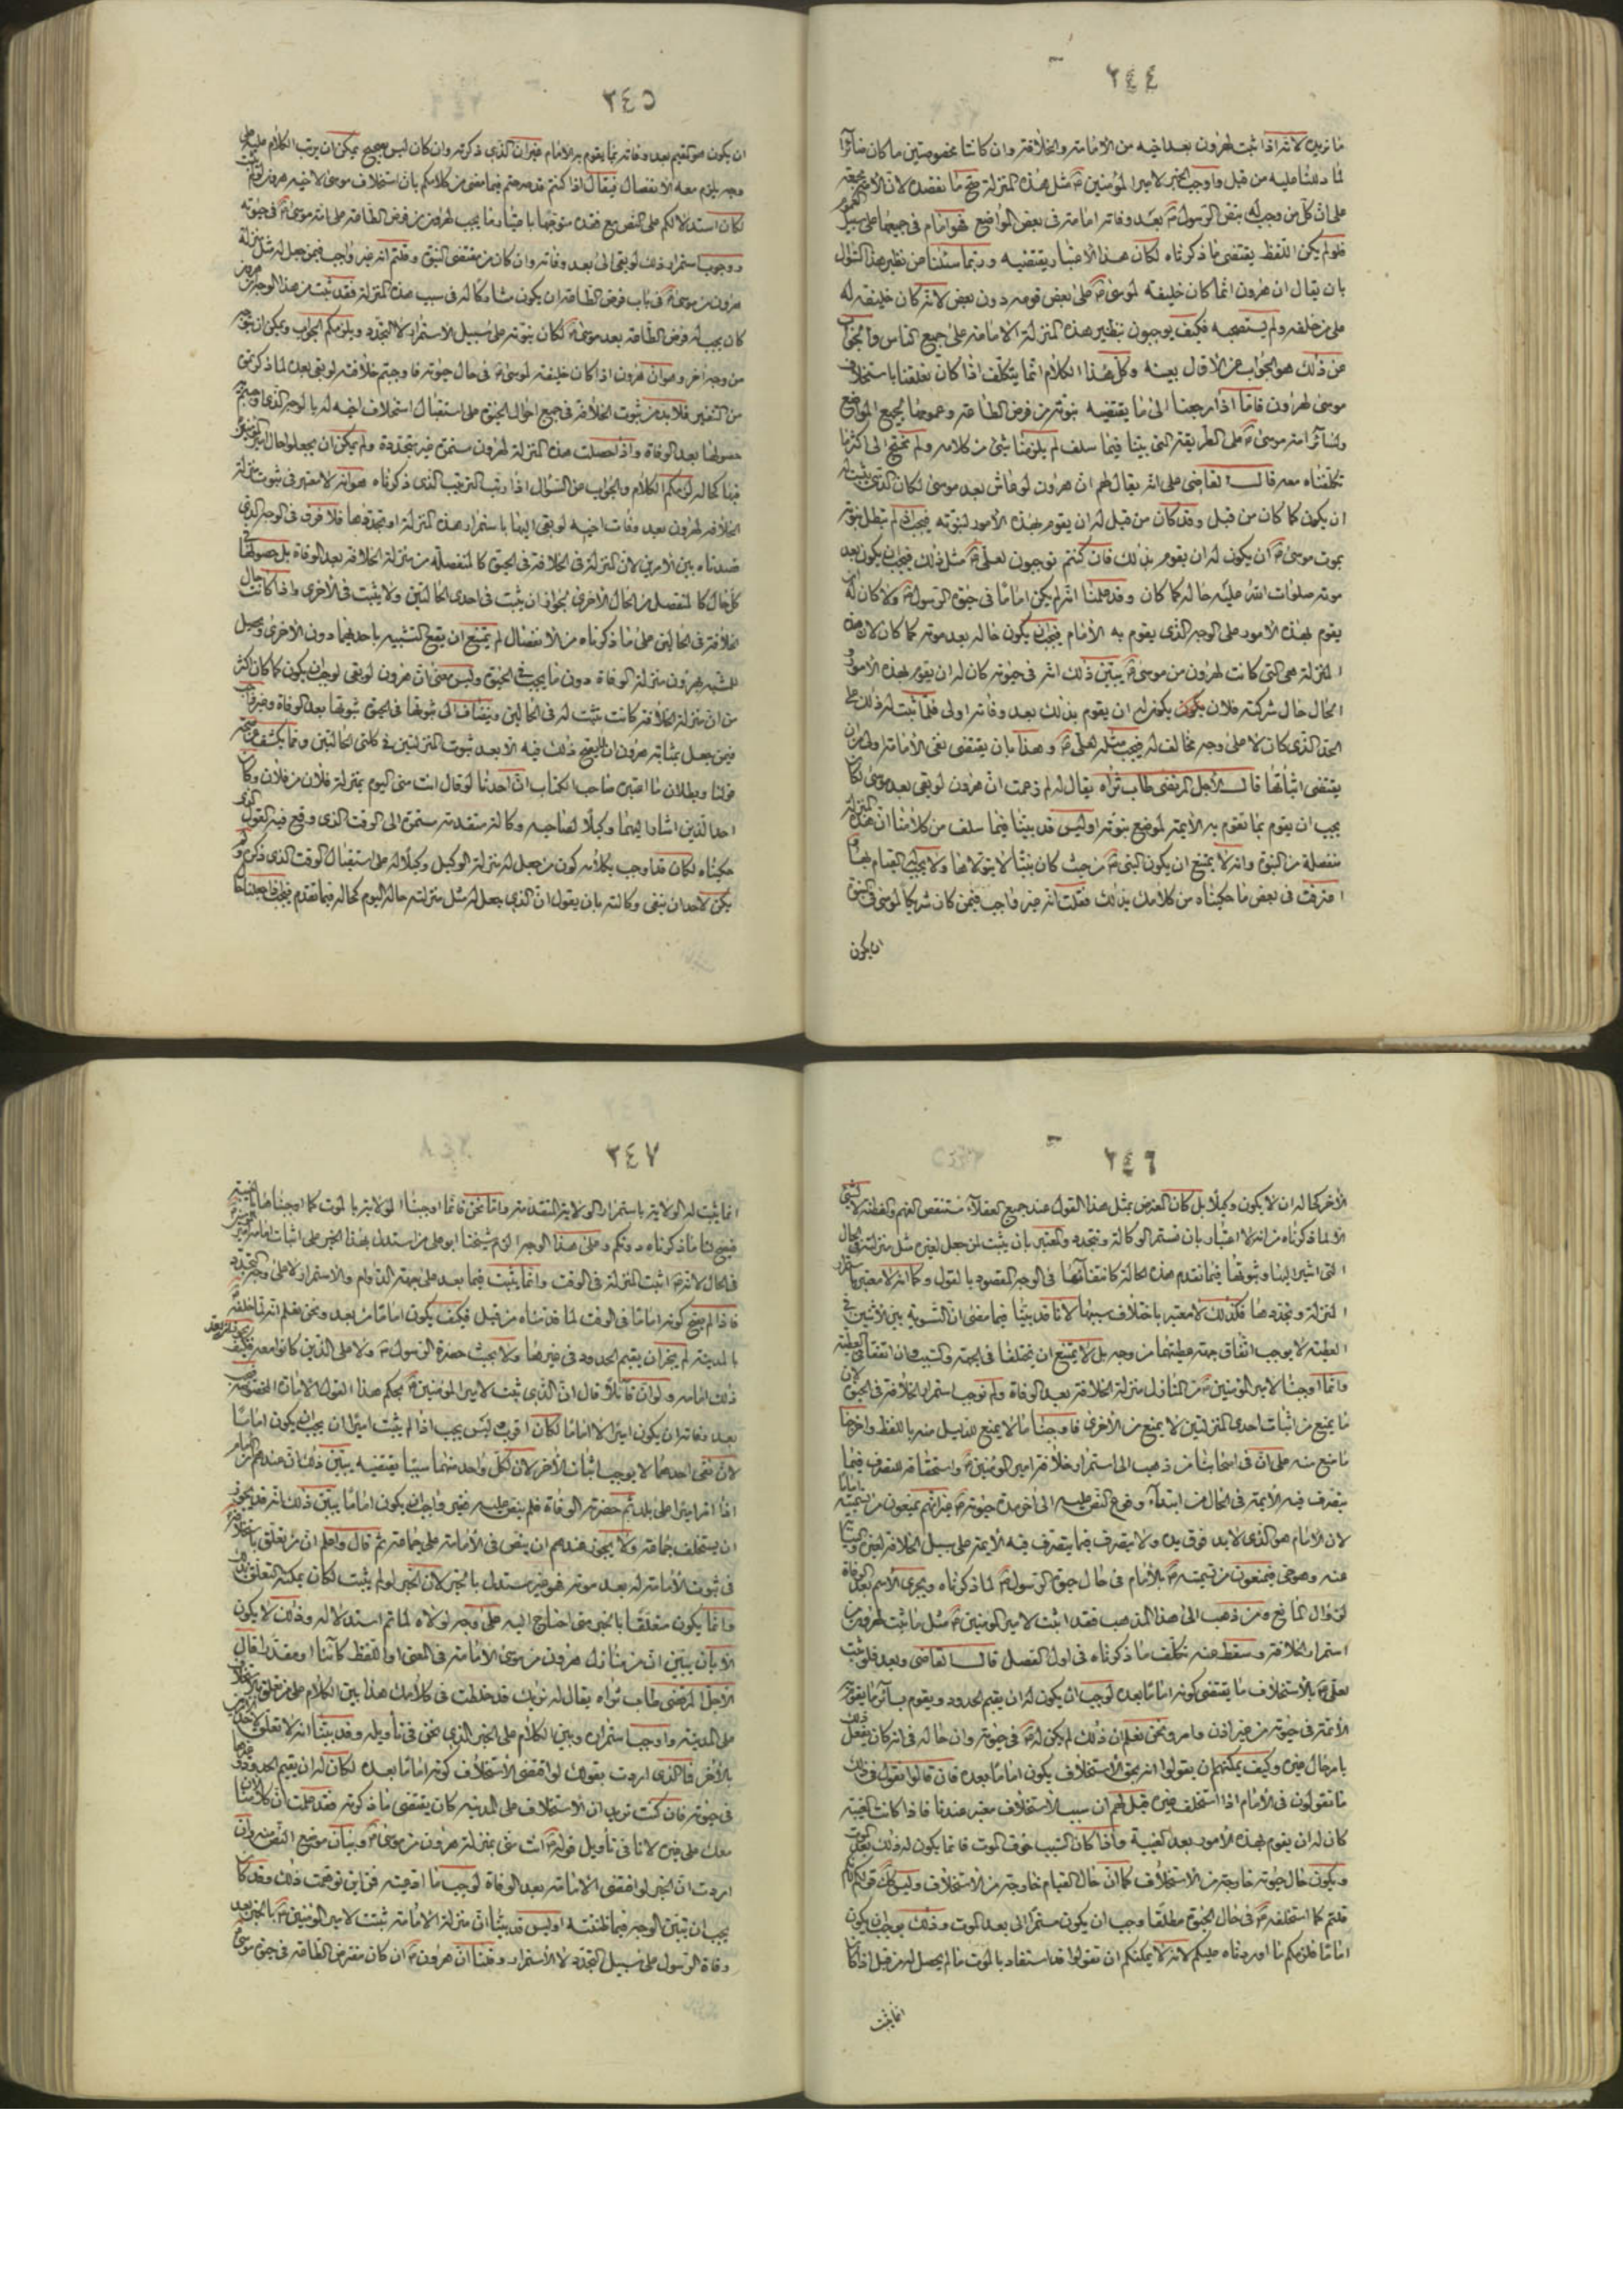 ٢٤٤
ما نريده لانه اذا ثبت لهرون بعد اخيه من الامامة والخلافة وان كانتا مخصوصتين ما كان ضائرا
لما دللنا عليه من قبل واوجب الخبر لامير المؤمنين ع مثل هذه المنزلة صح ما نقصده لان الامة مجمعة
على ان كل من وجب له بنص الرسول ص بعد وفاته امامة في بعض المواضع فهو امام في جميعها على سبيل العموم
فلو لم يكن اللفظ يقتضي ما ذكرناه لكان هذا الاعتبار يقتضيه وربما سئلنا عن نظير هذا السؤال
بان يقال ان هرون انما كان خليفة لموسى ع على بعض قومه دون بعض لانه كان خليفة له
على من خلفه ولم يستصحبه فكيف يوجبون بنظير هذه المنزلة الامامة على جميع الناس والجواب
عن ذلك هو الجواب عن الاول بعينه وكل هذا الكلام انما يتكلف اذا كان تعلقنا باستخلاف
موسى لهرون فاما اذا رجعنا الى ما يقتضيه نبوته من فرض الطاعة وعمومها بجميع المواضع
ولسائر امة موسى ع على الطريقة التي بينا فيما سلف لم يلزمنا شئ من كلامه ولم نحتج الى اكثر ما
تكلفناه معه قال القاضي على انه يقال لهم ان هرون لو عاش بعد موسى لكان الذي يثبت له
ان يكون كما كان من قبل وقد كان من قبل له ان يقوم بهذه الامور لنبوته فيجب اذا لم تبطل نبوته
بموت موسى ع ان يكون له ان يقوم بذلك فان كنتم توجبون لعلي ع مثل ذلك فيجب ان يكون بعد
موته صلوات الله عليه حاله كما كان وقد علمنا انه لم يكن اماما في حيوة الرسول ص ولا كان له ان
يقوم بهذه الامور على الوجه الذي يقوم به الامام فيجب ان يكون حاله بعد موته كما كان لان هذه
المنزلة هي التي كانت لهرون من موسى ع يبين ذلك انه في حيوته كان له ان يقوم بهذه الامور و
الحال حال شركة فلان يكون له ان يقوم بذلك بعد وفاته اولى فلما ثبت له ذلك على
الحد الذي كان لا على وجه مخالف له فيجب مثله لعلي ع وهذا بان يقتضي نفي الامامة اولى من ان
يقتضي اثباتها قال الاجل المرتضى طاب ثراه يقال له لم زعمت ان هرون لو بقي بعد موسى لكان
يجب ان يقوم بما تقوم به الائمة لموضع نبوته اوليس قد بينا فيما سلف من كلامنا ان هذه المنزلة
منفصلة من النبوة وانه لا يمتنع ان يكون النبي ع من حيث كان نبيا لا يتولاها ولا يجب له القيام بها و
اعترفت في بعض ما حكيناه من كلامك بذلك فقلت انه غير واجب فيمن كان شريكا لموسى في النبوة
ان يكون
٢٤٥
ان يكون هو القيم بعد وفاته بما يقوم به الامام غير ان الذي ذكرته وان كان ليس بصحيح يمكن ان يرتب الكلام عليه على
وجه يلزم معه الانفصال فيقال اذا كنتم قد صرحتم فيما مضى من كلامكم بان استخلاف موسى لاخيه هرون لو لم يثبت
لكان استدلالكم على النص مع فقده متوجها باعتبار ما يجب لهرون من فرض الطاعة على امة موسى ع في حيوته
ووجوب استمرار ذلك لو بقي الى بعد وفاته وان كان من مقتضى النبوة وقلتم انه غير واجب فيمن جعل له مثل منزلة
هرون من موسى ع في باب فرض الطاعة ان يكون مشاركا له في سبب هذه المنزلة فقد ثبت من هذا الوجه ان هرون
كان يجب له فرض الطاعة بعد موسى ع لكان نبوته على سبيل الاستمرار لا التجدد ويلزمكم الجواب ويمكن ان يقرر
من وجه اخر وهو ان هرون اذا كان خليفة لموسى ع في حال حيوته فاوجبتم خلافته لو بقي بعده لما ذكرتموه
من التنفير فلا بد من ثبوت الخلافة في جميع احوال الحيوة على استقبال استخلاف اخيه له بالوجه الذي اوجبتم
حصولها بعد الوفاة واذا حصلت هذه المنزلة لهرون مستمرة غير متجددة ولم يمكن ان يجعلوا حال امير المؤمنين
فيها كحاله لزمكم الكلام والجواب عن السؤال اذا رتب الترتيب الذي ذكرناه هو انه لا معتبر في ثبوت منزلة
الخلافة لهرون بعد وفات اخيه لو بقي اليها باستمرار هذه المنزلة او تجددها فلا فرق في الوجه الذي
قصدناه بين الامرين لان المنزلة في الخلافة في الحيوة كالمنفصلة من منزلة الخلافة بعد الوفاة بل حصولها في
كل حال كالمنفصل من الحال الاخرى لجواز ان يثبت في احدى الحالتين ولا يثبت في الاخرى واذا كانت حال
خلافته في الحالتين على ما ذكرناه من الانفصال لم يمتنع ان يقع التشبيه باحداهما دون الاخرى ويجعل
للمشبه بهرون منزلته الوفاة دون ما يجب في الحيوة وليس معنى ان هرون لو بقي لوجب ان يكون كما كان اكثر
من ان منزلة الخلافة كانت تثبت له في الحالتين ويضاف الى ثبوتها في الحيوة ثبوتها بعد الوفاة وغير واجب
فيمن جعل بمثابة هرون ان لا يصح ذلك فيه الا بعد ثبوت المنزلتين في كلتي الحالتين ومما يكشف عن صحة
قولنا وبطلان ما اعتبره صاحب الكتاب ان احدنا لو قال انت مني اليوم بمنزلة فلان من فلان وكان
احد اللذين اشار اليهما وكيلا لصاحبه وكالة متقدمة مستمرة الى الوقت الذي وقع فيه القول الذي
حكيناه لكان قد اوجب بكلامه كون من جعل له منزلة الوكيل وكيلا له على استقبال الوقت الذي ذكره ولم
يكن لاحد ان ينفي وكالته بان يقول ان الذي جعل له مثل منزلته حاله اليوم كحاله فيما تقدم فيجب اذا جعلنا حال
٢٤٦
الاخر كحاله ان لا يكون وكيلا بل كان المعترض بمثل هذا القول عند جميع العقلاء مستنقص الفهم والفطنة لا لشئ
الا لما ذكرناه من انه لا اعتبار بان تستمر الوكالة وتتجدد والمعتبر بان يثبت لمن جعل لغيره مثل منزلته في الحال
التي اشير اليها وثبوتها فيما تقدم هذه الحالة كانتفائها في الوجه المقصود بالقول وكما انه لا معتبر باستمرار
المنزلة وتجددها فكذلك لا معتبر باختلاف سببها لانا قد بينا فيما مضى ان التسوية بين الاثنين في
العطية لا يوجب اتفاق جهة عطيتهما من وجه بل لا يمتنع ان يختلفا في الجهة والسبب وان اتفقا في العطية
وانما اوجبنا لامير المؤمنين ع من المنازل منزلة الخلافة بعد الوفاة ولم نوجب استمرار الخلافة في الحيوة لان
ما يمنع من اثبات احدى المنزلتين لا يمنع من الاخرى فاوجبنا ما لا يمنع الدليل منه باللفظ واخرجنا
ما منع منه على ان في اصحابنا من ذهب الى استمرار خلافة امير المؤمنين ع واستحقاقه للتصرف فيما
يتصرف فيه الائمة في الحال من ابتداء وقوع النص عليه الى اخر مدة حيوته ع غير انهم يمنعون من تسميته اماما
لان الامام هو الذي لا يد فوق يده ولا يتصرف فيما يتصرف فيه الائمة على سبيل الخلافة لغيره والنيابة
عنه وهو حي فيمنعون من تسميته ع بالامام في حال حيوة الرسول ص لما ذكرناه ويجري الاسم بعد الوفاة
لزوال المانع ومن ذهب الى هذا المذهب فقد اثبت لامير المؤمنين ع مثل ما ثبت لهرون من
استمرار الخلافة وسقط عنه تكلف ما ذكرناه في اول الفصل قال القاضي وبعد فلو ثبت
لعلي ع بالاستخلاف ما يقتضي كونه اماما بعده لوجب ان يكون له ان يقيم الحدود ويقوم بسائر ما يقوم به
الائمة في حيوته من غير اذن وامر ونحن نعلم ان ذلك لم يكن له ع في حيوته وان حاله في انه كان يفعل ذلك
بامر حال غيره وكيف يمكنهم ان يقولوا انه بحق الاستخلاف يكون اماما بعده فان قالوا بقولي في ذلك
ما تقولون في الامام اذا استخلف غيره قيل لهم ان سبب الاستخلاف معتبر عندنا فاذا كانت الغيبة
كان له ان يقوم بهذه الامور بعد الغيبة واذا كان السبب خوف الموت فانما يكون له ذلك بعد الموت
ويكون حال حيوته خارجة من الاستخلاف كما ان حال القيام خارجة من الاستخلاف وليس كك قولكم لانكم
قلتم كما استخلفه ع في حال الحيوة مطلقا وجب ان يكون مستمرا الى بعد الموت وذلك يوجب ان يكون
اماما فلزمكم ما اوردناه عليكم لانه لا يمكنكم ان تقولوا قد استفاد بالموت ما لم يحصل له من قبل اذا كان
انما يثبت
٢٤٧
انما يثبت له الولاية باستمرار الولاية المتقدمة واما نحن فانما اوجبنا الولاية بالموت كما اوجبناها بالغيبة
فيصح لنا ما ذكرناه دونكم وعلى هذا الوجه الزم شيخنا ابو علي من استدل بهذا الخبر على اثبات امامة امير المؤمنين
في الحال لانه ع اثبت المنزلة في الوقت وانما يثبت فيما بعد على جهة الدوام والاستمرار لا على وجه التجدد
فاذا لم يصح كونه اماما في الوقت لما قدمناه من قبل فكيف يكون اماما من بعد ونحن نعلم انه لما خلفه
بالمدينة لم يجز ان يقيم الحدود في غيرها ولا بحيث حضره الرسول ص ولا على الذين كانوا معه فكيف يعد
ذلك امامة ولو ان قائلا قال ان الذي يثبت لامير المؤمنين ع بحكم هذا القول الامارة المخصوصة فيجب
بعد وفاته ان يكون اميرا لا اماما لكان اقرب وليس يجب اذا لم يثبت اميرا ان يجب ان يكون اماما
لان نفي احدهما لا يوجب اثبات الاخر لان لكل واحد منهما سببا يقتضيه يبين ذلك ان عندهم ان الامام
اذا امر اميرا على بلد ثم حضرته الوفاة فلم ينص عليه فغير واجب ان يكون اماما يبين ذلك انه قد يجوز
ان يستخلف جماعة ولا يجوز عندهم ان ينص في الامامة على جماعة ثم قال واعلم ان من تعلق باستخلافه
في ثبوت الامامة له بعد موته فهو غير مستدل بالخبر لان الخبر لو لم يثبت لكان يمكنه التعلق بذلك
وانما يكون متعلقا بالخبر متى احتاج اليه على وجه لولاه لما تم استدلاله وذلك لا يكون
الا بان يبين ان من منازل هرون من موسى الامامة في المعنى او اللفظ كائنا او مقدرا قال
الاجل المرتضى طاب ثراه يقال له نراك قد خلطت في كلامك هذا بين الكلام على من تعلق باستخلافه
على المدينة واوجب استمراره وبين الكلام على الخبر الذي نحن في تأويله وقد بينا انه لا تعلق لاحدهما
بالاخر فما الذي اردت بقولك لو اقتضى الاستخلاف كونه اماما بعده لكان له ان يقيم الحدود
في حيوته فان كنت تريد ان الاستخلاف على المدينة كان يقتضي ما ذكرته فقد علمت ان كلامنا
معك على غيره لانا في تأويل قوله ص انت مني بمنزلة هرون من موسى ع وبيان موضع النص منه وان
اردت ان الخبر لو اقتضى الامامة بعد الوفاة لوجب ما ادعيته فمن اين توهمت ذلك وقد كان
يجب ان تبين الوجه فيما ظننته اوليس قد بينا ان منزلة الامامة ثبتت لامير المؤمنين ع بالخبر بعد
وفاة الرسول على سبيل التجدد لا الاستمرار وقلنا ان هرون ع ان كان مفترض الطاعة في حيوة موسى